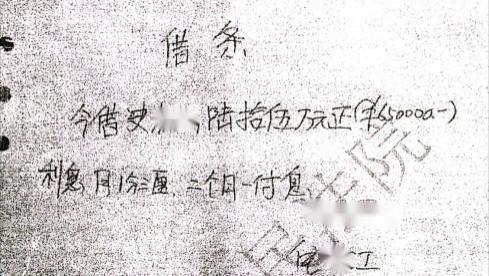 借条
今借史 陆拾伍万元正(¥650000-)
利息月1分二厘 二个月一付息
江
法院